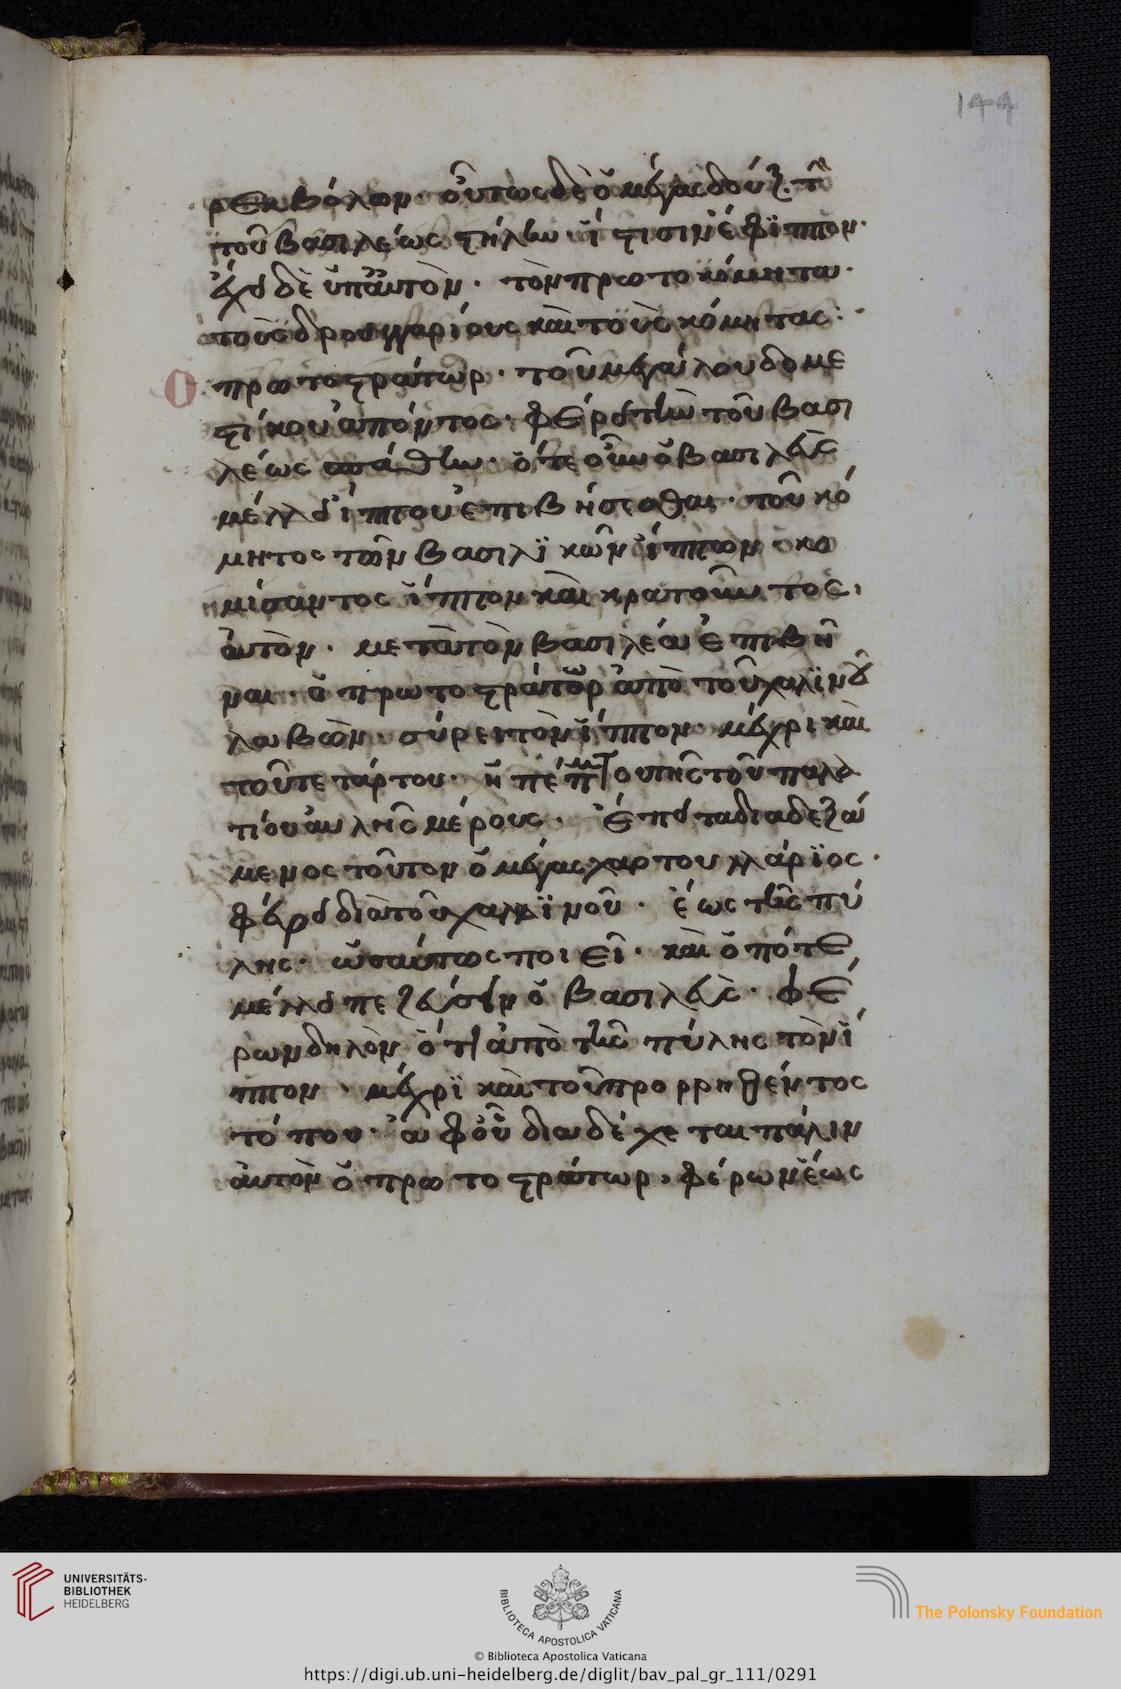 144
ρεκβόλων· οὕτως δὲ ὁ μέγας δούξ. τὴν
τοῦ βασιλέως στήλην ἵστησιν ἔφιππον·
ἔχει δὲ ὑπ' αὐτὸν· τὸν πρωτοκόμητα·
τοὺς δρουγγαρίους καὶ τοὺς κόμητας:
Ὁ πρωτοστράτωρ· τοῦ μεγάλου δομε
στίκου ἀπόντος· φέρει τὴν τοῦ βασι
λέως σπάθην· ὅτε οὖν ὁ βασιλεὺς
μέλλει ἵππου ἐπιβήσεσθαι· τοῦ κό
μητος τῶν βασιλικῶν ἵππων κο
μίσαντος ἵππον καὶ κρατοῦντος·
αὐτὸν· μετὰ τὸν βασιλέα ἐπιβῆ
ναι· ὁ πρωτοστράτωρ ἀπὸ τοῦ χαλϊνοῦ
λαβὼν· σύρει τὸν ἵππον· μέχρι καὶ
τοῦ τετάρτου· ἢ πέμπτου τῆς τοῦ παλα
τίου αὐλῆς μέρους· Ἔπειτα διαδεξά
μενος τοῦτον ὁ μέγας χαρτουλλάριος·
φέρει διὰ τοῦ χαλϊνοῦ· ἕως τῆς πύ
λης· ὡσαύτως ποιεῖ· καὶ ὁπότε
μέλλει πεζεύσειν ὁ βασιλεὺς· φέ
ρων δηλονότι ἀπὸ τῆς πύλης τὸν ἵ
ππον· μέχρι καὶ τοῦ προρρηθέντος
τόπου· ἀφ' οὗ διαδέχεται πάλιν
αὐτὸν ὁ πρωτοστράτωρ· φέρων ἕως
UNIVERSITÄTS-
BIBLIOTHEK
HEIDELBERG
BIBLIOTECA APOSTOLICA VATICANA
The Polonsky Foundation
© Biblioteca Apostolica Vaticana
https://digi.ub.uni-heidelberg.de/diglit/bav_pal_gr_111/0291